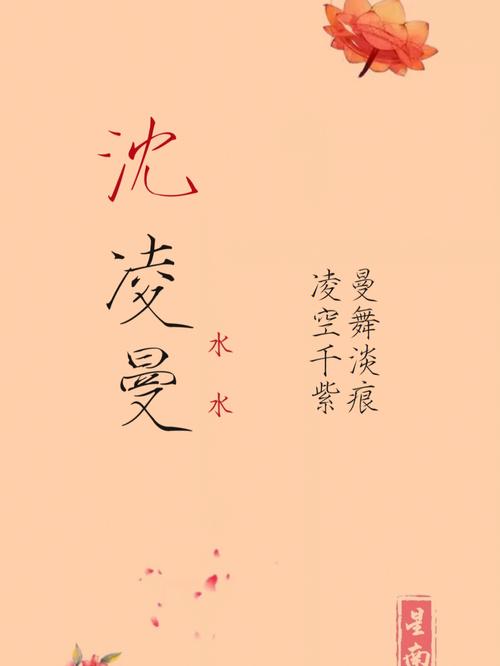 沈
凌曼
水
水
曼舞淡痕
凌空千紫
星南